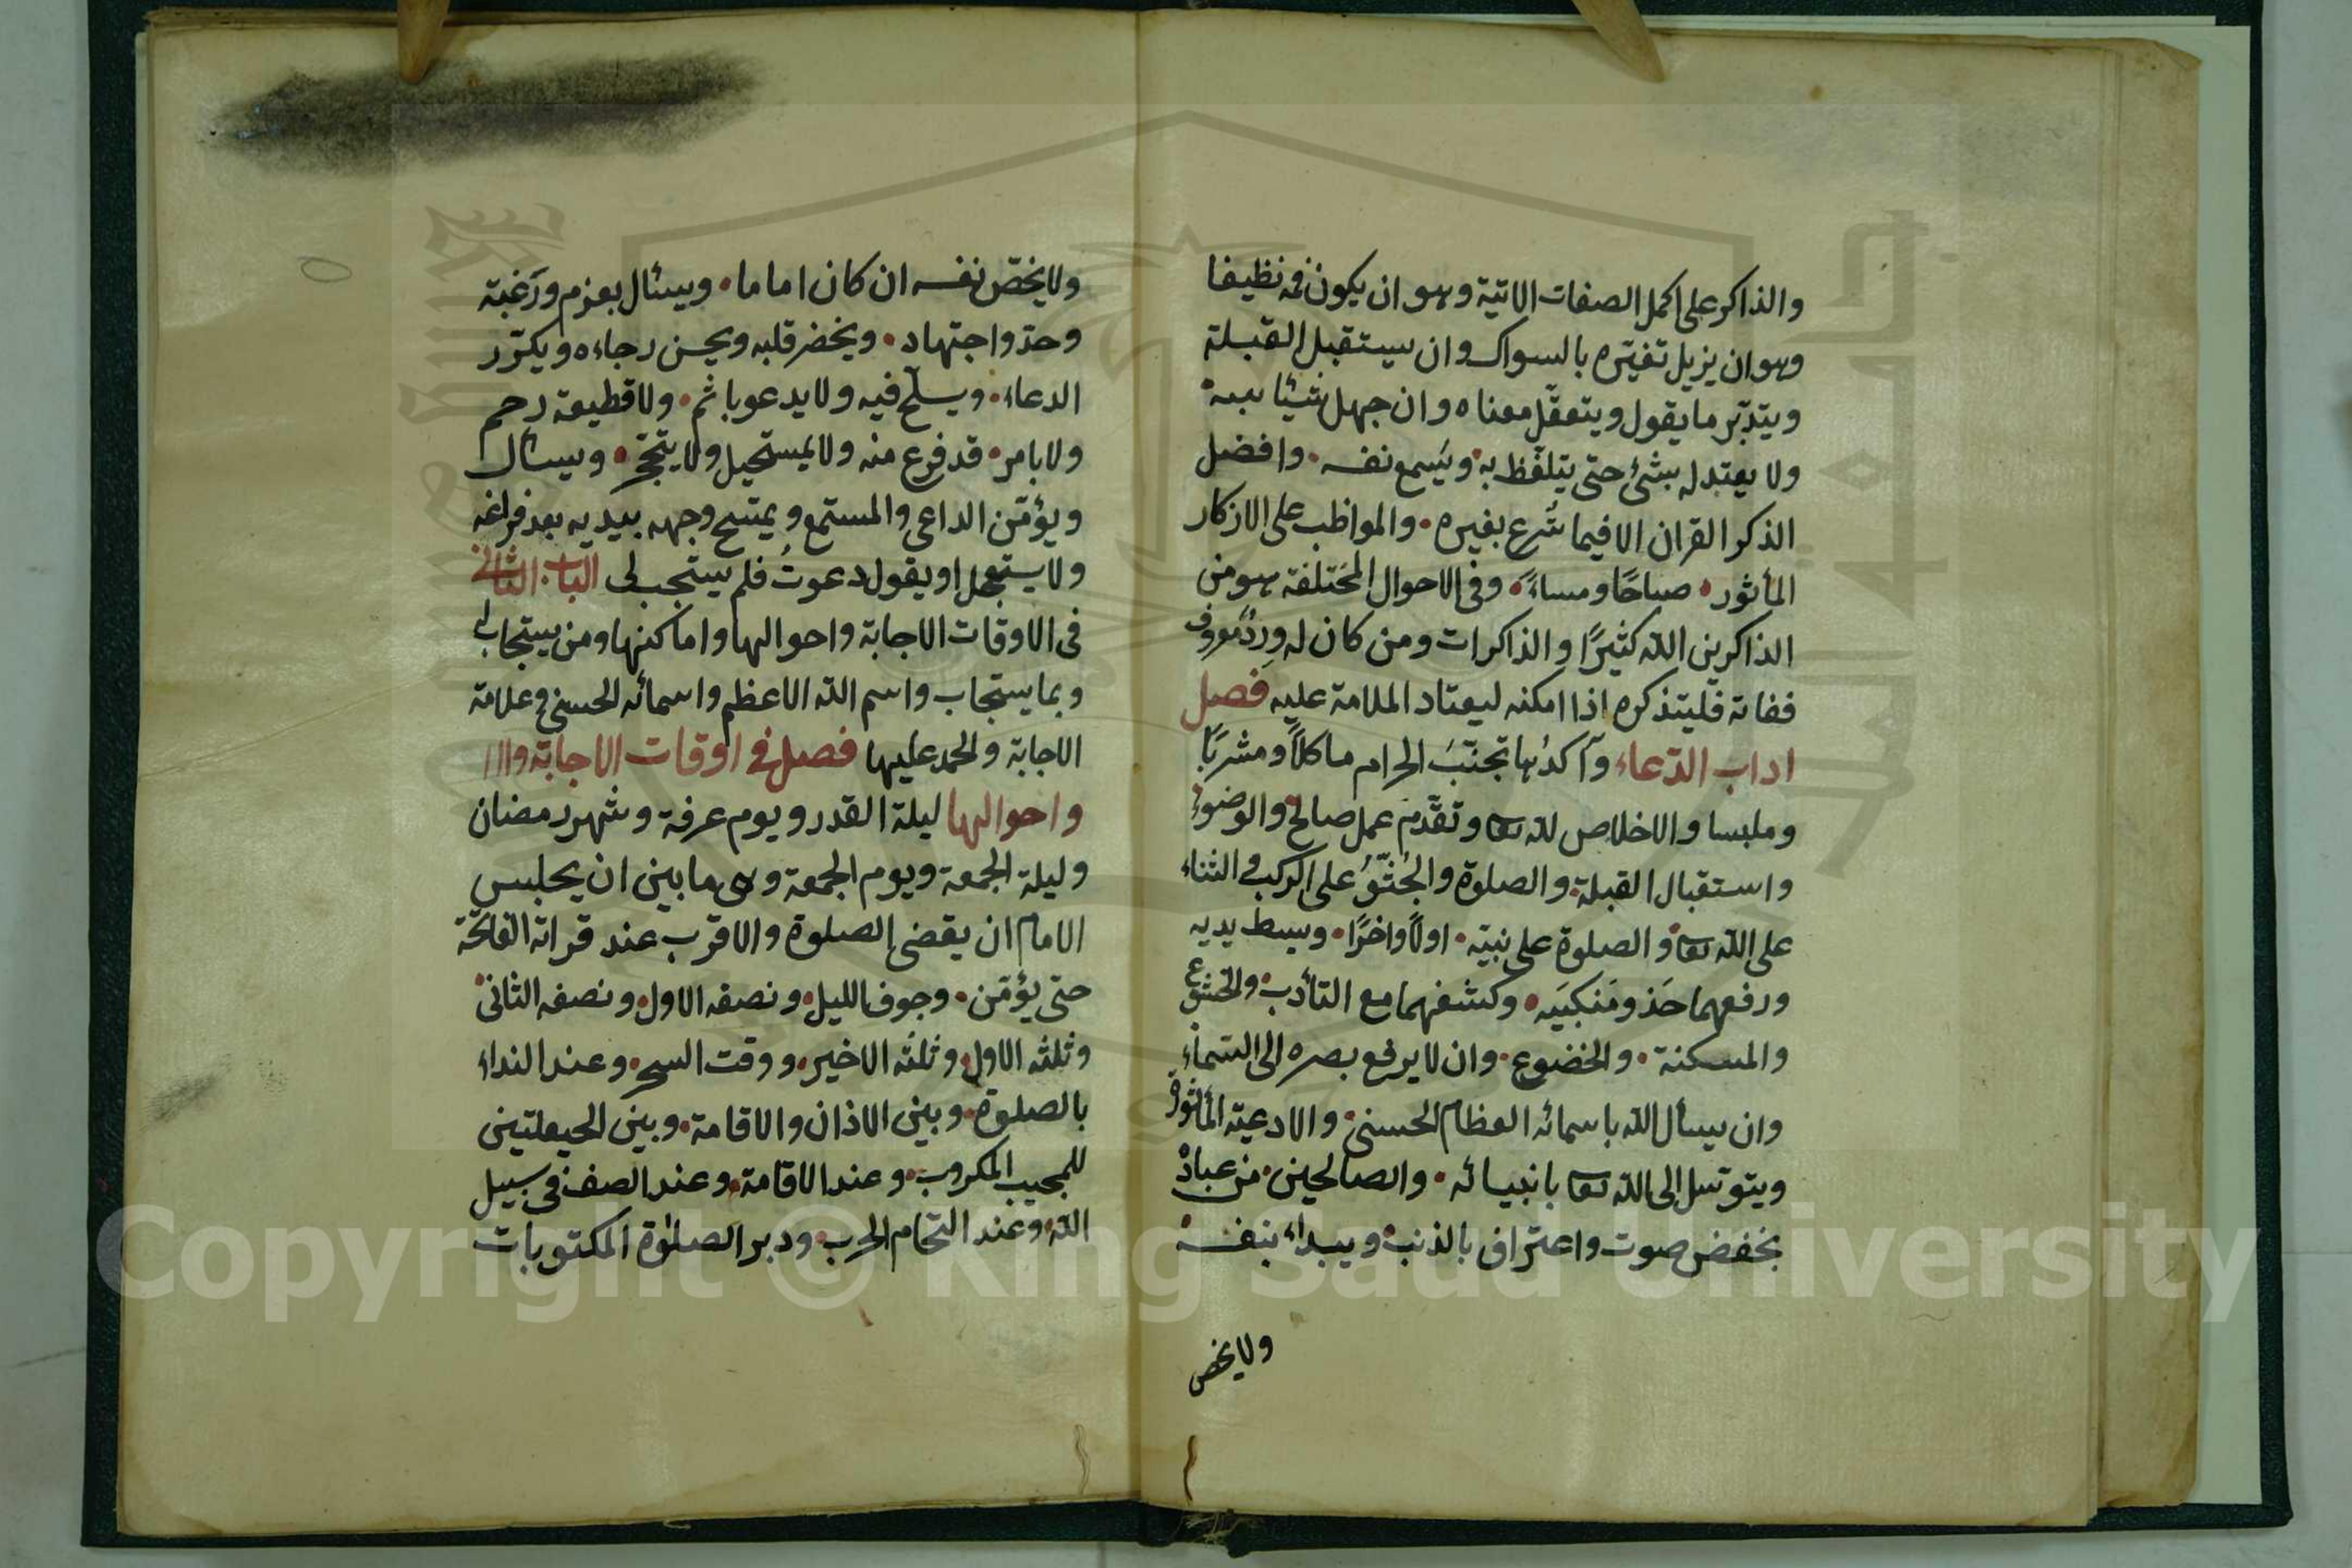 والذاكر على اكمل الصفات الاتية وهو ان يكون فمه نظيفا
وهو ان يزيل تغيّره بالسواك وان يستقبل القبلة
ويتدبّر ما يقول ويتعقّل معناه وان جهل شيئا
ولا يعتد له بشئ حتى يتلفّظ به ويسمع نفسه وافضل
الذكر القران الا فيما شُرع بغيره والمواظب على الاذكار
المأثور صباحًا ومساءً وفى الاحوال المختلفة هو من
الذاكرين الله كثيرًا والذاكرات ومن كان له وِردٌ معروف
ففاته فليتذكره اذا امكنه ليعتاد الملامة عليه فصل
اداب الدّعاء وآكدُها تجنّبُ الحرام ماكلاً ومشربًا
وملبسا والاخلاص لله تعا وتقدّم عمل صالح والوضوء
واستقبال القبلة والصلوة والجُثوُّ على الركب والثناء
على الله تعا والصلوة على نبيّه اولاً واخرًا وبسط يديه
ورفعهما حَذو مَنكبَيه وكشفهما مع التأدب والخشوع
والمسكنة والخضوع وان لا يرفع بصره الى السّماء
وان يسأل الله باسمائه العظام الحسنى والادعية المأثورة
ويتوسّل الى الله تعا بانبيائه والصالحين من عباده
بخفض صوت واعتراف بالذنب ويبداء بنفسه
ولا يخص
ولا يخصّ نفسه ان كان اماما ويسئال بعزم ورَغبة
وجد واجتهاد ويحضر قلبه ويحسن رجاءه ويكرّر
الدعاء ويلحّ فيه ولا يدعو باثم ولا قطيعة رحم
ولا بامر قد فرع منه ولا يمستحيل ولا يتحجّر ويسئال
ويؤمّن الداعى والمستمع ويمسح وجهه بيديه بعد فراغه
ولا يستعجل او يقول دعوتُ فلم يستجب لى الباب الثانى
فى الاوقات الاجابة واحوالها واماكنها ومن يستجاب له
وبما يستجاب واسم الله الاعظم واسمائه الحسنى وعلامة
الاجابة والحمد عليها فصل فى اوقات الاجابة
واحوالها ليلة القدر ويوم عرفة وشهر رمضان
وليلة الجمعة ويوم الجمعة وهى ما بين ان يجلس
الامام ان يقضى الصلوة والاقرب عند قراة الفاتحة
حتى يؤمّن وجوف الليل ونصفه الاول ونصفه الثانى
وثلثه الاول وثلثه الاخير ووقت السحر وعند النداء
بالصلوة وبين الاذان والاقامة وبين الحيعلتين
للمجيب المكروب وعند الاقامة وعند الصف فى سبيل
الله وعند التحام الحرب ودبر الصلوة المكتوبات
Copyright © King Saud University